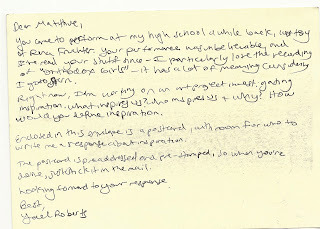 Dear Matthue,
You came to perform at my high school a while back, courtesy
of Rena. Your performance was unbelievable, and
I reread your stuff time - I particularly love the recording
of "Orthodox Girls" - it has a lot of meaning
I
Right now, I'm working on an art project investigating
inspiration. what inspires us? who inspires us & why? How
would you define inspiration.
Enclosed in this envelope is a postcard, with room for you to
write me a response about inspiration.
The postcard is preaddressed and pre-stamped, so when you're
done, just stick it in the mail.
Looking forward to your response
Best,
Yael Roberts